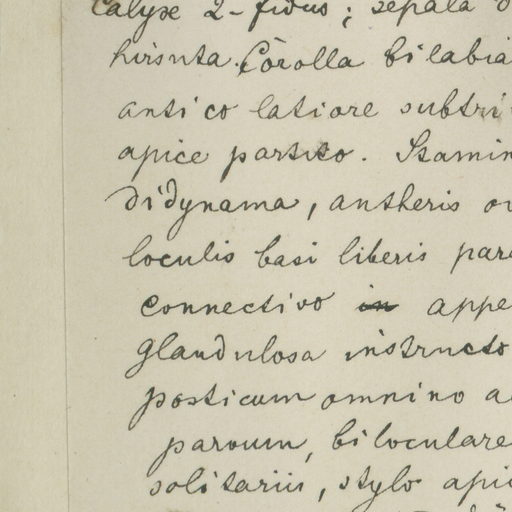 Calyx 2-fidus; sepala
hirsuta. Corolla bilabia
antico latiore subtri
apice partito. Stamin
didynama, antheris ov
loculis basi liberis par
connectivo in appe
glandulosa instructo
posticum omnino a
parvum, biloculare
solitariis, stylo apic